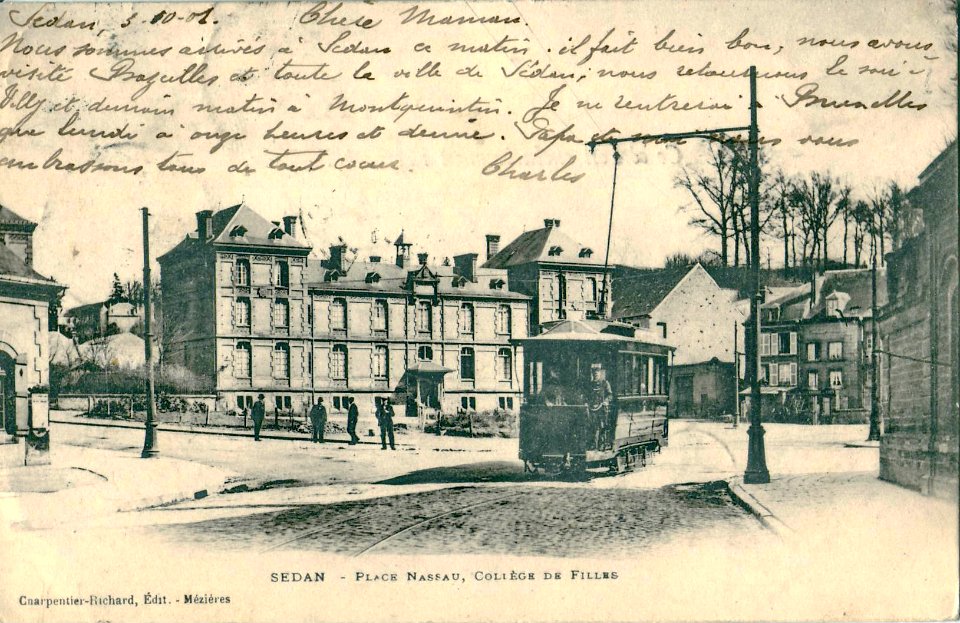 Sedan, 5-10-01. Chère Maman.
Nous sommes arrivés à Sedan ce matin. il fait bien bon, nous avons
visité Bazeilles et toute la ville de Sédan; nous retournons le soir à
et demain matin à Montquintin. Je ne rentrerai à Bruxelles
que lundi à onze heures et demie. Papa et moi nous vous
embrassons tous de tout coeur. Charles
SEDAN - PLACE NASSAU, COLLÈGE DE FILLES
Charpentier-Richard, Édit. - Mézières